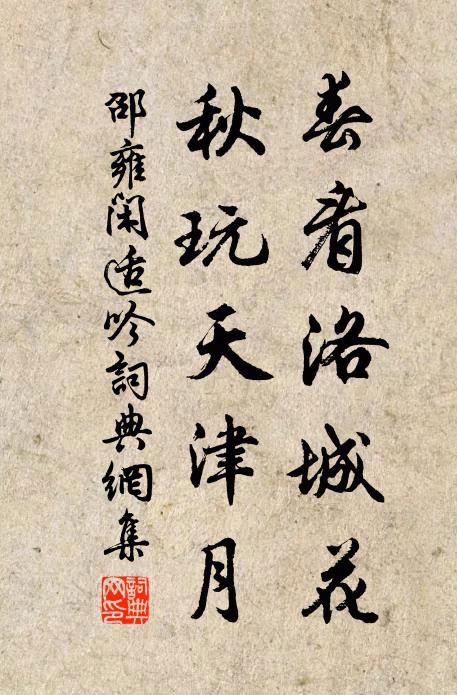 春看洛城花
秋玩天津月
邵雍閑适吟詞典網集
詞典
网印